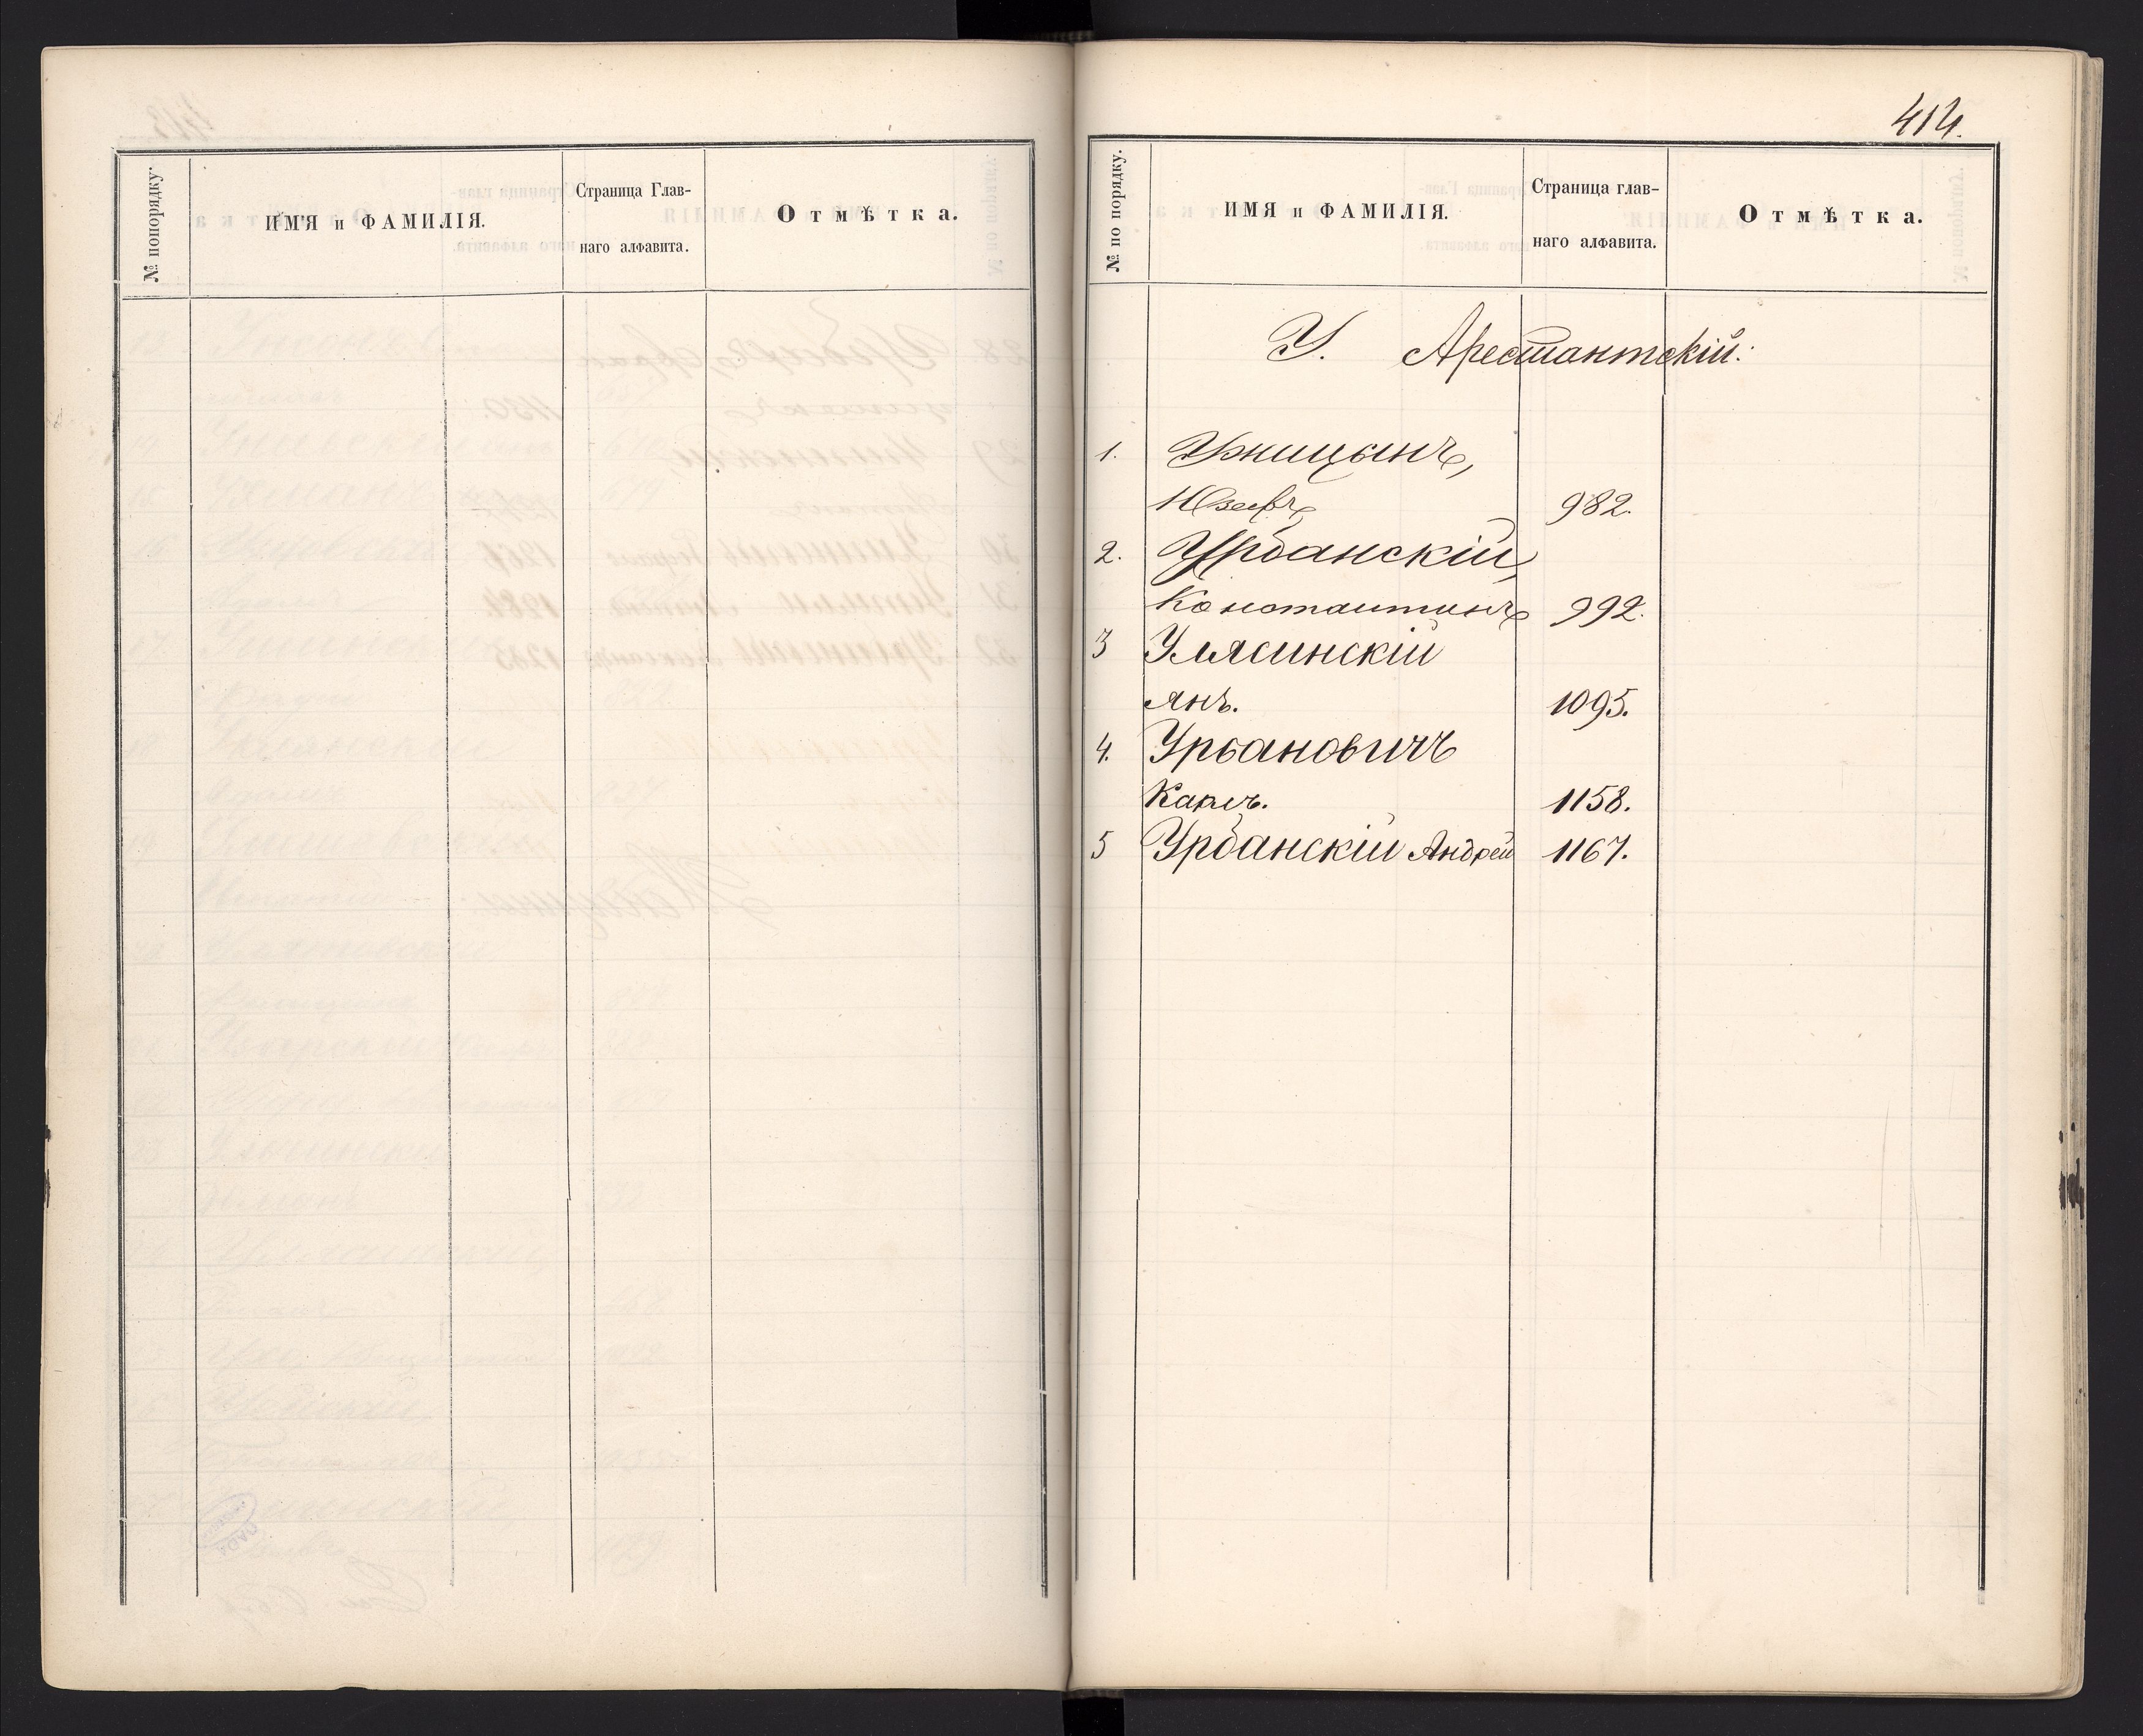 № попорядку.
ИМЯ и ФАМИЛІЯ.
Страница Глав-
наго алфавита.
Отмѣтка.
414.
№ по порядку.
ИМЯ и ФАМИЛІЯ.
Страница глав-
наго алфавита.
Отмѣтка.
У. Арестантскій:
1.
Юзефъ 982.
2. Урбанскій,
Константинъ 992.
3 Улясинскій
Янъ. 1095.
4. Урбановичъ
Карлъ. 1158.
5 Урбанскій Андрей 1167.